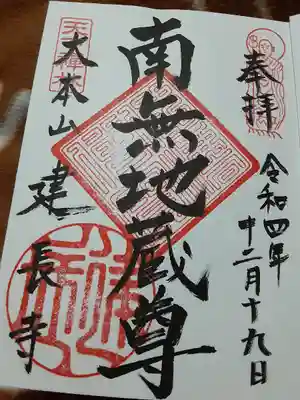 奉拝
令和四年
十二月十九日
南無地蔵尊
大本山
建長寺